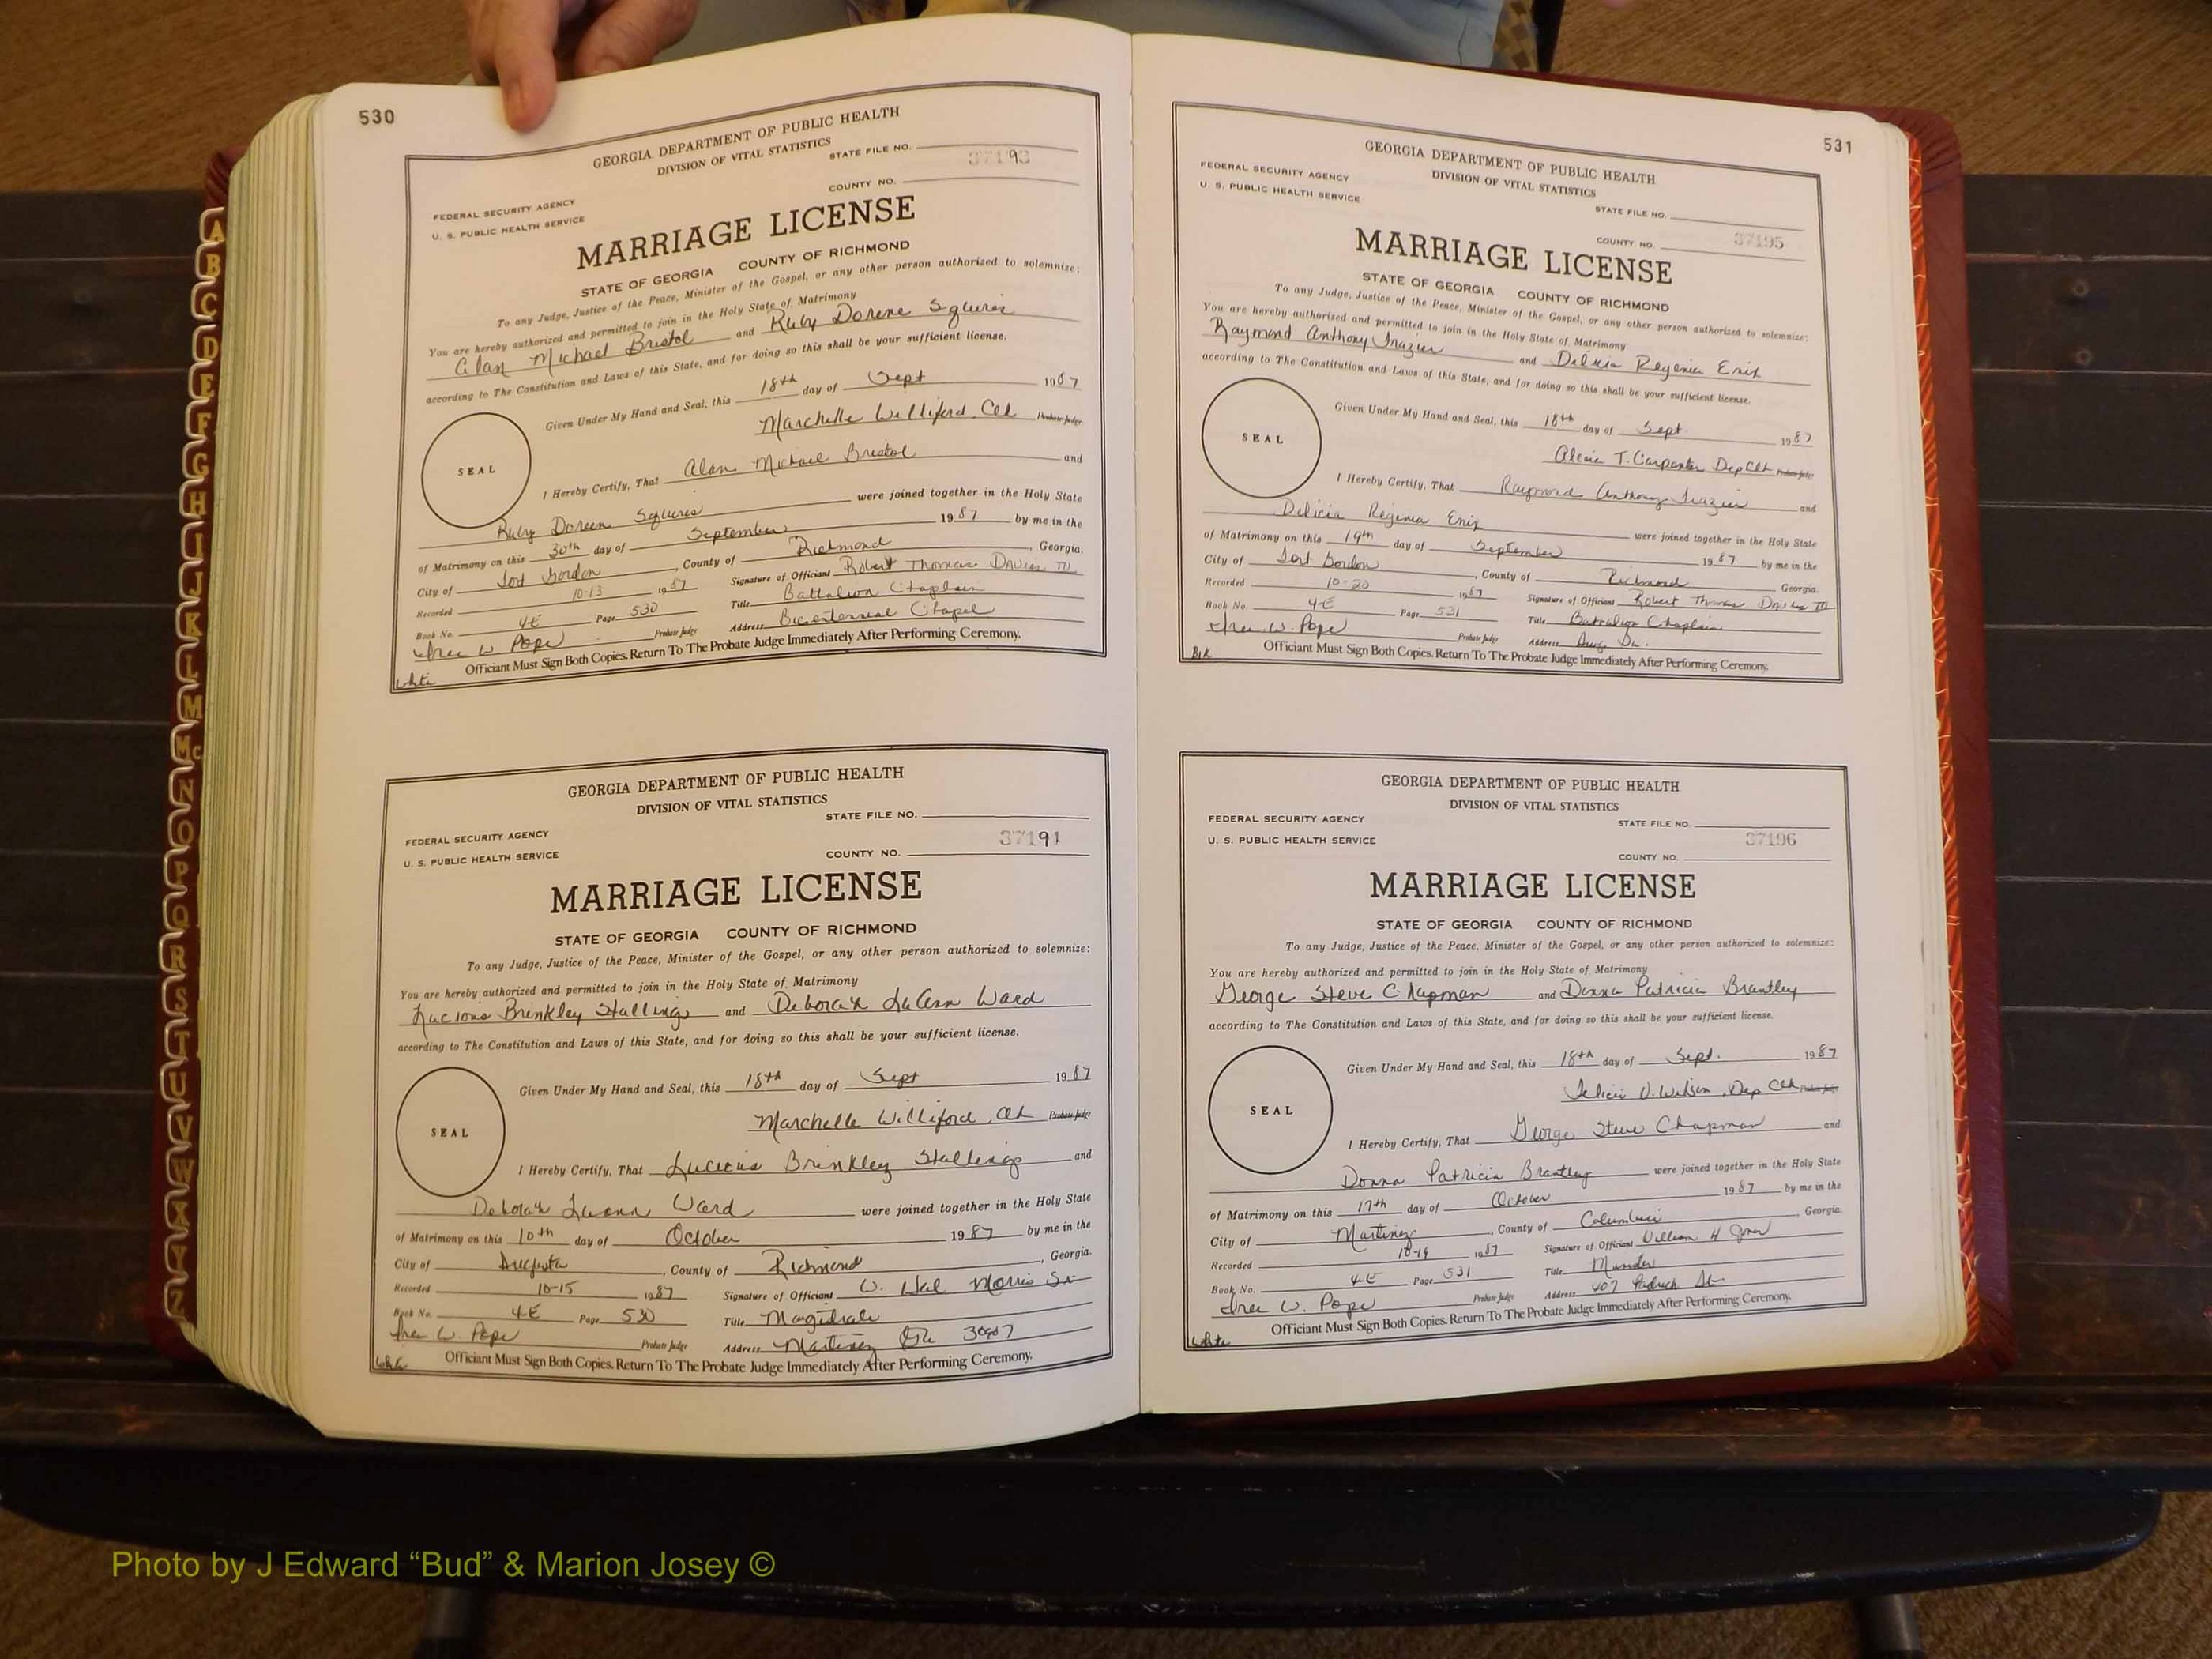 530
GEORGIA DEPARTMENT OF PUBLIC HEALTH
DIVISION OF VITAL STATISTICS
STATE FILE NO. 37193
COUNTY NO.
FEDERAL SECURITY AGENCY
U. S. PUBLIC HEALTH SERVICE
MARRIAGE LICENSE
STATE OF GEORGIA COUNTY OF RICHMOND
To any Judge, Justice of the Peace, Minister of the Gospel, or any other person authorized to solemnize:
You are hereby authorized and permitted to join in the Holy State of Matrimony
Alan Michael Bristol and Ruby Dorene Squires
according to The Constitution and Laws of this State, and for doing so this shall be your sufficient license.
Given Under My Hand and Seal, this 18th day of Sept 1987
Marchelle Williford, Clk Probate Judge
SEAL
I Hereby Certify, That Alan Michael Bristol and
Ruby Doreen Squires were joined together in the Holy State
of Matrimony on this 30th day of September 1987 by me in the
City of Fort Gordon, County of Richmond, Georgia.
Recorded 10-13 1987 Signature of Officiant Robert Thomas Davies III
Book No. 4E Page 530 Title Battalion Chaplain
Probate Judge Address Bicentennial Chapel
Officiant Must Sign Both Copies. Return To The Probate Judge Immediately After Performing Ceremony.
White
GEORGIA DEPARTMENT OF PUBLIC HEALTH
DIVISION OF VITAL STATISTICS
STATE FILE NO.
FEDERAL SECURITY AGENCY
37194
U. S. PUBLIC HEALTH SERVICE
COUNTY NO.
MARRIAGE LICENSE
STATE OF GEORGIA COUNTY OF RICHMOND
To any Judge, Justice of the Peace, Minister of the Gospel, or any other person authorized to solemnize:
You are hereby authorized and permitted to join in the Holy State of Matrimony
Lucious Brinkley Stallings and Deborah LuAnn Ward
according to The Constitution and Laws of this State, and for doing so this shall be your sufficient license.
Given Under My Hand and Seal, this 18th day of Sept 1987
Marchelle Williford, Clk Probate Judge
SEAL
I Hereby Certify, That Lucious Brinkley Stallings and
Deborah Luann Ward were joined together in the Holy State
of Matrimony on this 10th day of October 1987 by me in the
City of Augusta, County of Richmond, Georgia.
Recorded 10-15 1987 Signature of Officiant W. Hal Morris Sr
Book No. 4E Page 530 Title Magistrate
W. Pope Probate Judge Address Martinez Ga 30907
Officiant Must Sign Both Copies. Return To The Probate Judge Immediately After Performing Ceremony.
531
GEORGIA DEPARTMENT OF PUBLIC HEALTH
DIVISION OF VITAL STATISTICS
FEDERAL SECURITY AGENCY
U. S. PUBLIC HEALTH SERVICE
STATE FILE NO.
COUNTY NO. 37195
MARRIAGE LICENSE
STATE OF GEORGIA COUNTY OF RICHMOND
To any Judge, Justice of the Peace, Minister of the Gospel, or any other person authorized to solemnize:
You are hereby authorized and permitted to join in the Holy State of Matrimony
Raymond Anthony Frazier and Delicia Regenia Enix
according to The Constitution and Laws of this State, and for doing so this shall be your sufficient license.
Given Under My Hand and Seal, this 18th day of Sept. 1987
T. Carpenter Dep Clk Probate Judge
SEAL
I Hereby Certify, That Raymond Anthony Frazier and
Delicia Regenia Enix were joined together in the Holy State
of Matrimony on this 19th day of September 1987 by me in the
City of Fort Gordon, County of Richmond Georgia.
Recorded 10-20 1987 Signature of Officiant Robert Thomas Davies III
Book No. 4E Page 531 Title Battalion Chaplain
W. Pope Probate Judge Address Aug. Ga.
Blk Officiant Must Sign Both Copies. Return To The Probate Judge Immediately After Performing Ceremony.
GEORGIA DEPARTMENT OF PUBLIC HEALTH
DIVISION OF VITAL STATISTICS
FEDERAL SECURITY AGENCY
STATE FILE NO.
U. S. PUBLIC HEALTH SERVICE
37196
COUNTY NO.
MARRIAGE LICENSE
STATE OF GEORGIA COUNTY OF RICHMOND
To any Judge, Justice of the Peace, Minister of the Gospel, or any other person authorized to solemnize:
You are hereby authorized and permitted to join in the Holy State of Matrimony
George Steve Chapman and Donna Patricia Brantley
according to The Constitution and Laws of this State, and for doing so this shall be your sufficient license.
Given Under My Hand and Seal, this 18th day of Sept. 1987
Felicia V. Wilson, Dep Clk Probate Judge
SEAL
I Hereby Certify, That George Steve Chapman and
Donna Patricia Brantley were joined together in the Holy State
of Matrimony on this 17th day of October 1987 by me in the
City of Martinez, County of Columbia, Georgia.
Recorded 10-19 1987 Signature of Officiant William H Jones
Book No. 4E Page 531 Title
W. Pope Probate Judge Address 407 St
White Officiant Must Sign Both Copies. Return To The Probate Judge Immediately After Performing Ceremony.
A
B
C
D
E
F
G
H
I
J
K
L
M
MC
N
O
P
Q
R
S
T
U
V
W
X
Y
Z
Photo by J Edward “Bud” & Marion Josey ©